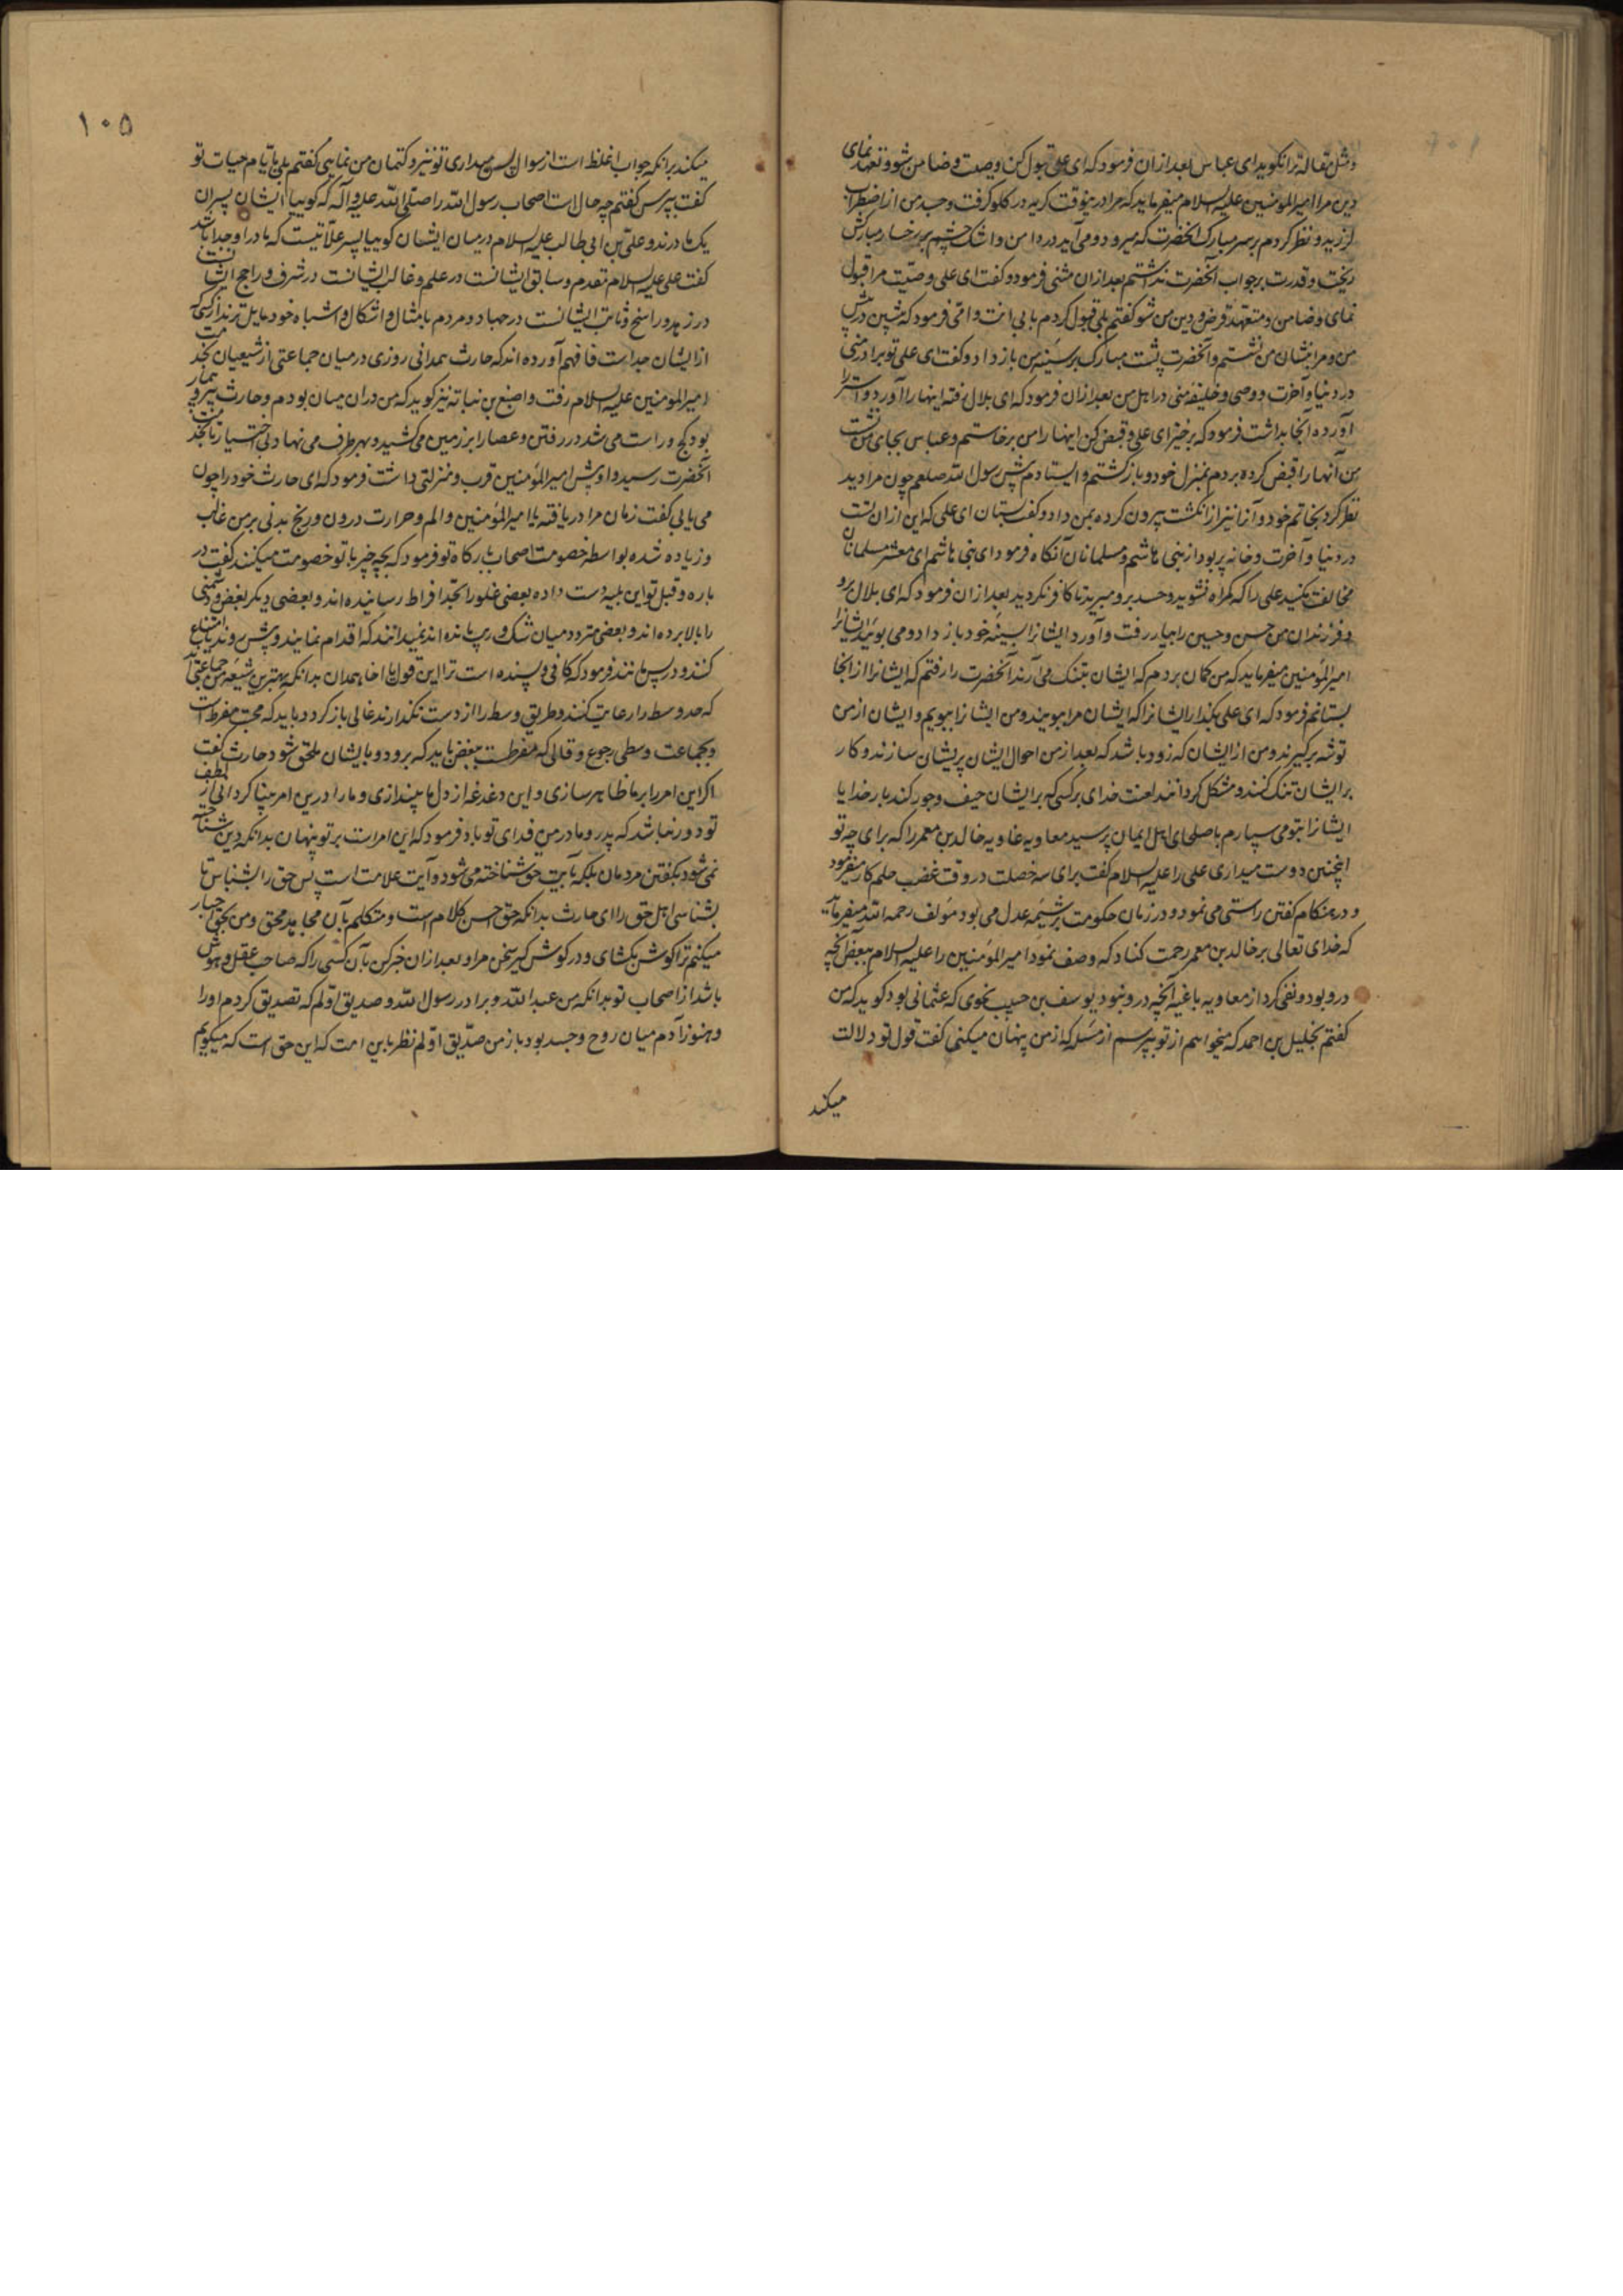 و مثل مقاله ترا نگوید ای عباس بعد ازان فرمود که ای علی قبول کن وصیت و ضامن شو و تعهد نمای
دین مرا امیرالمومنین علیه السلام میفرماید که مرا درینوقت گریه در گلو گرفت و جسد من از اضطراب
لرزید و نظر کردم بر سر مبارک آنحضرت که میرود و می آید در دامن و اشک چشم بر رخسار مبارکش
ریخت و قدرت بر جواب آنحضرت نداشتم بعد ازان مثنی فرمود و گفت ای علی وصیّت مرا قبول
نمای و ضامن و متعهد قرض و دین من شو گفتم بلی قبول کردم بابی انت و امّی فرمود که بنشین در پیش
من و مرا بنشان من نشستم و آنحضرت پشت مبارک بر سینه من باز داد و گفت ای علی تو برادر منی
در دنیا و آخرت و وصی و خلیفه منی در اهل من بعد ازان فرمود که ای بلال رفته اینها را آورد و استر را
آورده آنجا بداشت فرمود که برخیز ای علی و قبض کن اینها را من برخاستم و عباس بجای من نشست
من آنها را قبض کرده بردم بمنزل خود و باز گشتم و ایستادم پیش رسول الله صلعم چون مرا دید
نظر کرد بخاتم خود و آنرا نیز از انگشت بیرون کرده بمن داد و گفت بستان ای علی که این ازان تست
در دنیا و آخرت و خانه پر بود از بنی هاشم و مسلمانان آنگاه فرمود ای بنی هاشم ای معشر مسلمانان
مخالفت مکنید علی را که گمراه نشوید و حسد برو مبرید تا کافر نگردید بعد ازان فرمود که ای بلال برو
و فرزندان من حسن و حسین را بیار رفت و آورد ایشانرا بسینه خود باز داد و می بوئید ایشانرا
امیرالمؤمنین میفرماید که من گمان بردم که ایشان بتنگ می آرند آنحضرت را رفتم که ایشانرا از انجا
بستانم فرمود که ای علی بگذار ایشانرا که ایشان مرا ببویند و من ایشانرا ببویم و ایشان از من
توشه برگیرند و من از ایشان که زود باشد که بعد از من احوال ایشان پریشان سازند و کار
بر ایشان تنگ کنند و مشکل گردانند لعنت خدای بر کسی که بر ایشان حیف و جور کند بار خدایا
ایشانرا بتو می سپارم با صلحای اهل ایمان پرسید معاویه غاویه خالد بن معمر را که برای چه تو
اینچنین دوست میداری علی را علیه السلام گفت برای سه خصلت در وقت غضب حلم کار میفرمود
و در هنگام گفتن راستی می نمود و در زمان حکومت بر شیمه عدل می بود مؤلف رحمه الله میفرماید
که خدای تعالی بر خالد بن معمر رحمت کناد که وصف نمود امیرالمؤمنین را علیه السلام ببعض آنچه
درو بود و نفی کرد از معاویه باغیه آنچه درو نبود یوسف بن حبیب نحوی که عثمانی بود گوید که من
گفتم بخلیل بن احمد که میخواهم از تو بپرسم از مسئله که از من پنهان میکنی گفت قول تو دلالت
میکند
١٠٥
میکند برانکه جواب اغلظ است از سوال پس میداری تو نیز و کتمان من نمایی گفتم بلی تا ایام حیات تو
گفت بپرس گفتم چه حال است اصحاب رسول الله را صلّی الله علیه و آله که گوییا ایشان پسران
یک مادرند و علی بن ابی طالب علیه السلام در میان ایشان گوییا پسر علّاتیست که مادر او جدا باشد
گفت علی علیه السلام تقدم و سابق ایشانست در علم و غالب ایشانست در شرف و راجح ایشانست
در زهد و راسخ و ثابت ایشانست در جهاد و مردم بامثال و اشکال و اشباه خود مایل ترند از کسی که
از ایشان جداست فافهم آورده اند که حارث همدانی روزی در میان جماعتی از شیعیان بخدمت
امیرالمومنین علیه السلام رفت و اصبغ بن نباته نیز گوید که من دران میان بودم و حارث پیر و بیمار
بود کج و راست می شد در رفتن و عصا را بر زمین می کشید و بهر طرف می نهاد بی اختیار تا بخدمت
آنحضرت رسید و او پیش امیرالمؤمنین قرب و منزلتی داشت فرمود که ای حارث خود را چون
می یابی گفت زمان مرا دریافته یا امیرالمؤمنین و الم و حرارت درون و رنج بدنی بر من غالب
و زیاده شده بواسطه خصومت اصحاب بدرگاه تو فرمود که بچه چیز با تو خصومت میکنند گفت در
باره و قبل تو این بلیه است داده بعضی غلو را بحدّ افراط رسانیده اند و بعضی دیگر بغض و دشمنی
را بالا برده اند و بعضی متردد میان شک و ریب مانده اند نمیدانند که اقدام نمایند و پیش روند یا امتناع
کنند و در پس مانند فرمود که کافی و بسنده است ترا این قول یا اخا همدان بدانکه بهترین شیعه من جماعتی اند
که حد وسط را رعایت کنند و طریق وسط را از دست نگذارند غالی باز گردد باید که محب مفرط است
و بجماعت وسطی رجوع و قالی که مفرطست ببغض باید که برود و بایشان ملحق شود حارث گفت
اگر این امر را بر ما ظاهر سازی و این دغدغه از دل ما بیندازی و ما را درین امر بینا گردانی از لطف
تو دور نباشد که پدر و مادر من فدای تو باد فرمود که این امر است بر تو پنهان بدانکه دین شناخته
نمی شود بگفتن مردمان بلکه بآیت حق شناخته می شود و آیت علامت است پس حق را بشناس تا
بشناسی اهل حق را ای حارث بدانکه حق احسن کلام است و متکلم بآن مجاهد محق و من بحق اخبار
میکنم ترا گوش بگشای و در گوش گیر سخن مرا و بعد ازان خبر کن بآن کسی را که صاحب عقل و هوش
باشد از اصحاب تو بدانکه من عبد الله و برادر رسول الله و صدیق اوّلم که تصدیق کردم او را
و هنوز آدم میان روح و جسد بود باز من صدّیق اوّلم نظر باین امت که این حق است که میگویم